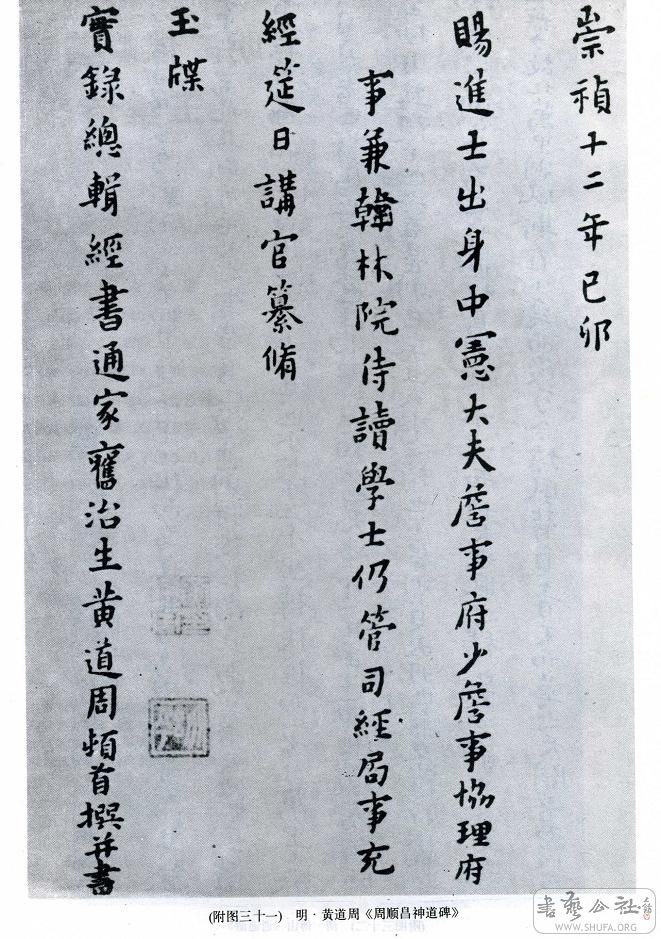 崇禎十二年己卯
賜進士出身中憲大夫詹事府少詹事協理府
事兼翰林院侍讀學士仍管司經局事充
經筵日講官纂脩
玉牒
實録總輯經書通家舊治生黄道周頓首撰并書
(附图三十一) 明·黄道周《周顺昌神道碑》
書藝公社
WWW.SHUFA.ORG